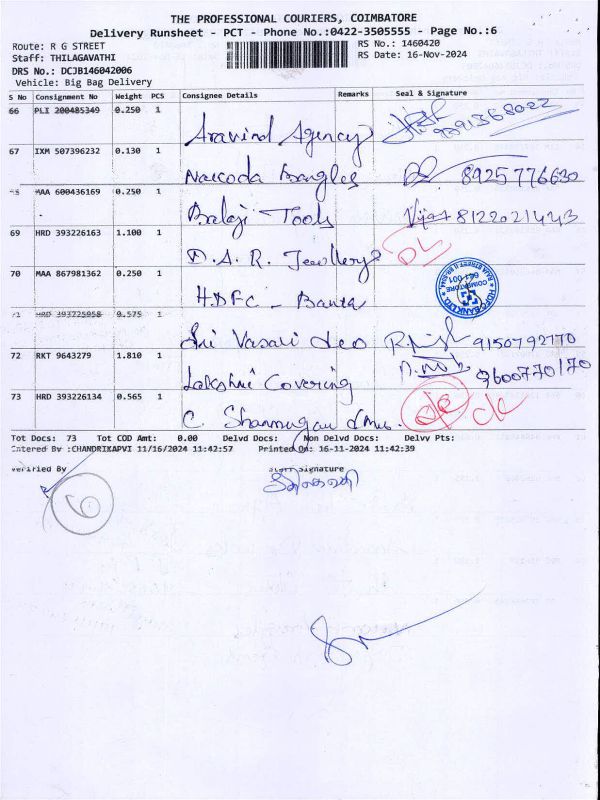 THE PROFESSIONAL COURIERS, COIMBATORE
Delivery Runsheet - PCT - Phone No.:0422-3505555 - Page No.:6
Route: R G STREET RS No.: 1460420
Staff: THILAGAVATHI RS Date: 16-Nov-2024
DRS No.: DCJB146042006
Vehicle: Big Bag Delivery
S No Consignment No Weight PCS Consignee Details Remarks Seal & Signature
66 PLI 200485349 0.250 1
Aravind Agency 9391368022
67 IXM 507396232 0.130 1
Nakoda Bangles 8925776630
MAA 600436169 0.250 1
Balaji Tools 8122021443
69 HRD 393226163 1.100 1
D.A.R. Jewellery DL
70 MAA 867981362 0.250 1
HDFC - HDFC BANK LTD. COIMBATORE 641 001
HRD 393225958 0.575 1
Sri Vasavi 9150792770
72 RKT 9643279 1.810 1
Lakshmi Covering 9600770170
73 HRD 393226134 0.565 1
C. Shanmugam
Tot Docs: 73 Tot COD Amt: 0.00 Delvd Docs: Non Delvd Docs: Delvy Pts:
Entered By :CHANDRIKAPVI 11/16/2024 11:42:57 Printed On: 16-11-2024 11:42:39
Verified By Staff Signature